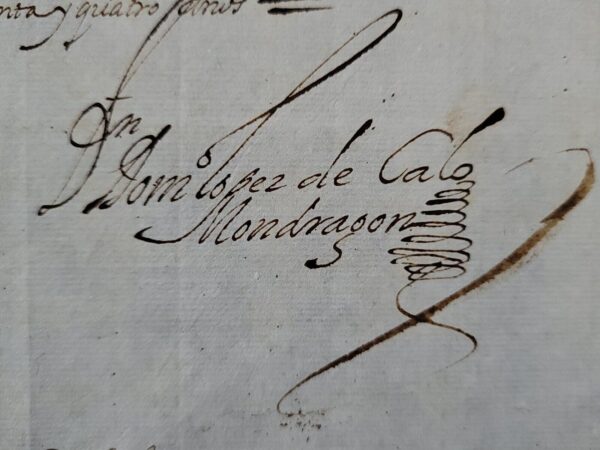 nta y quatro años
Dn Domo Lopez de Calo
Mondragon